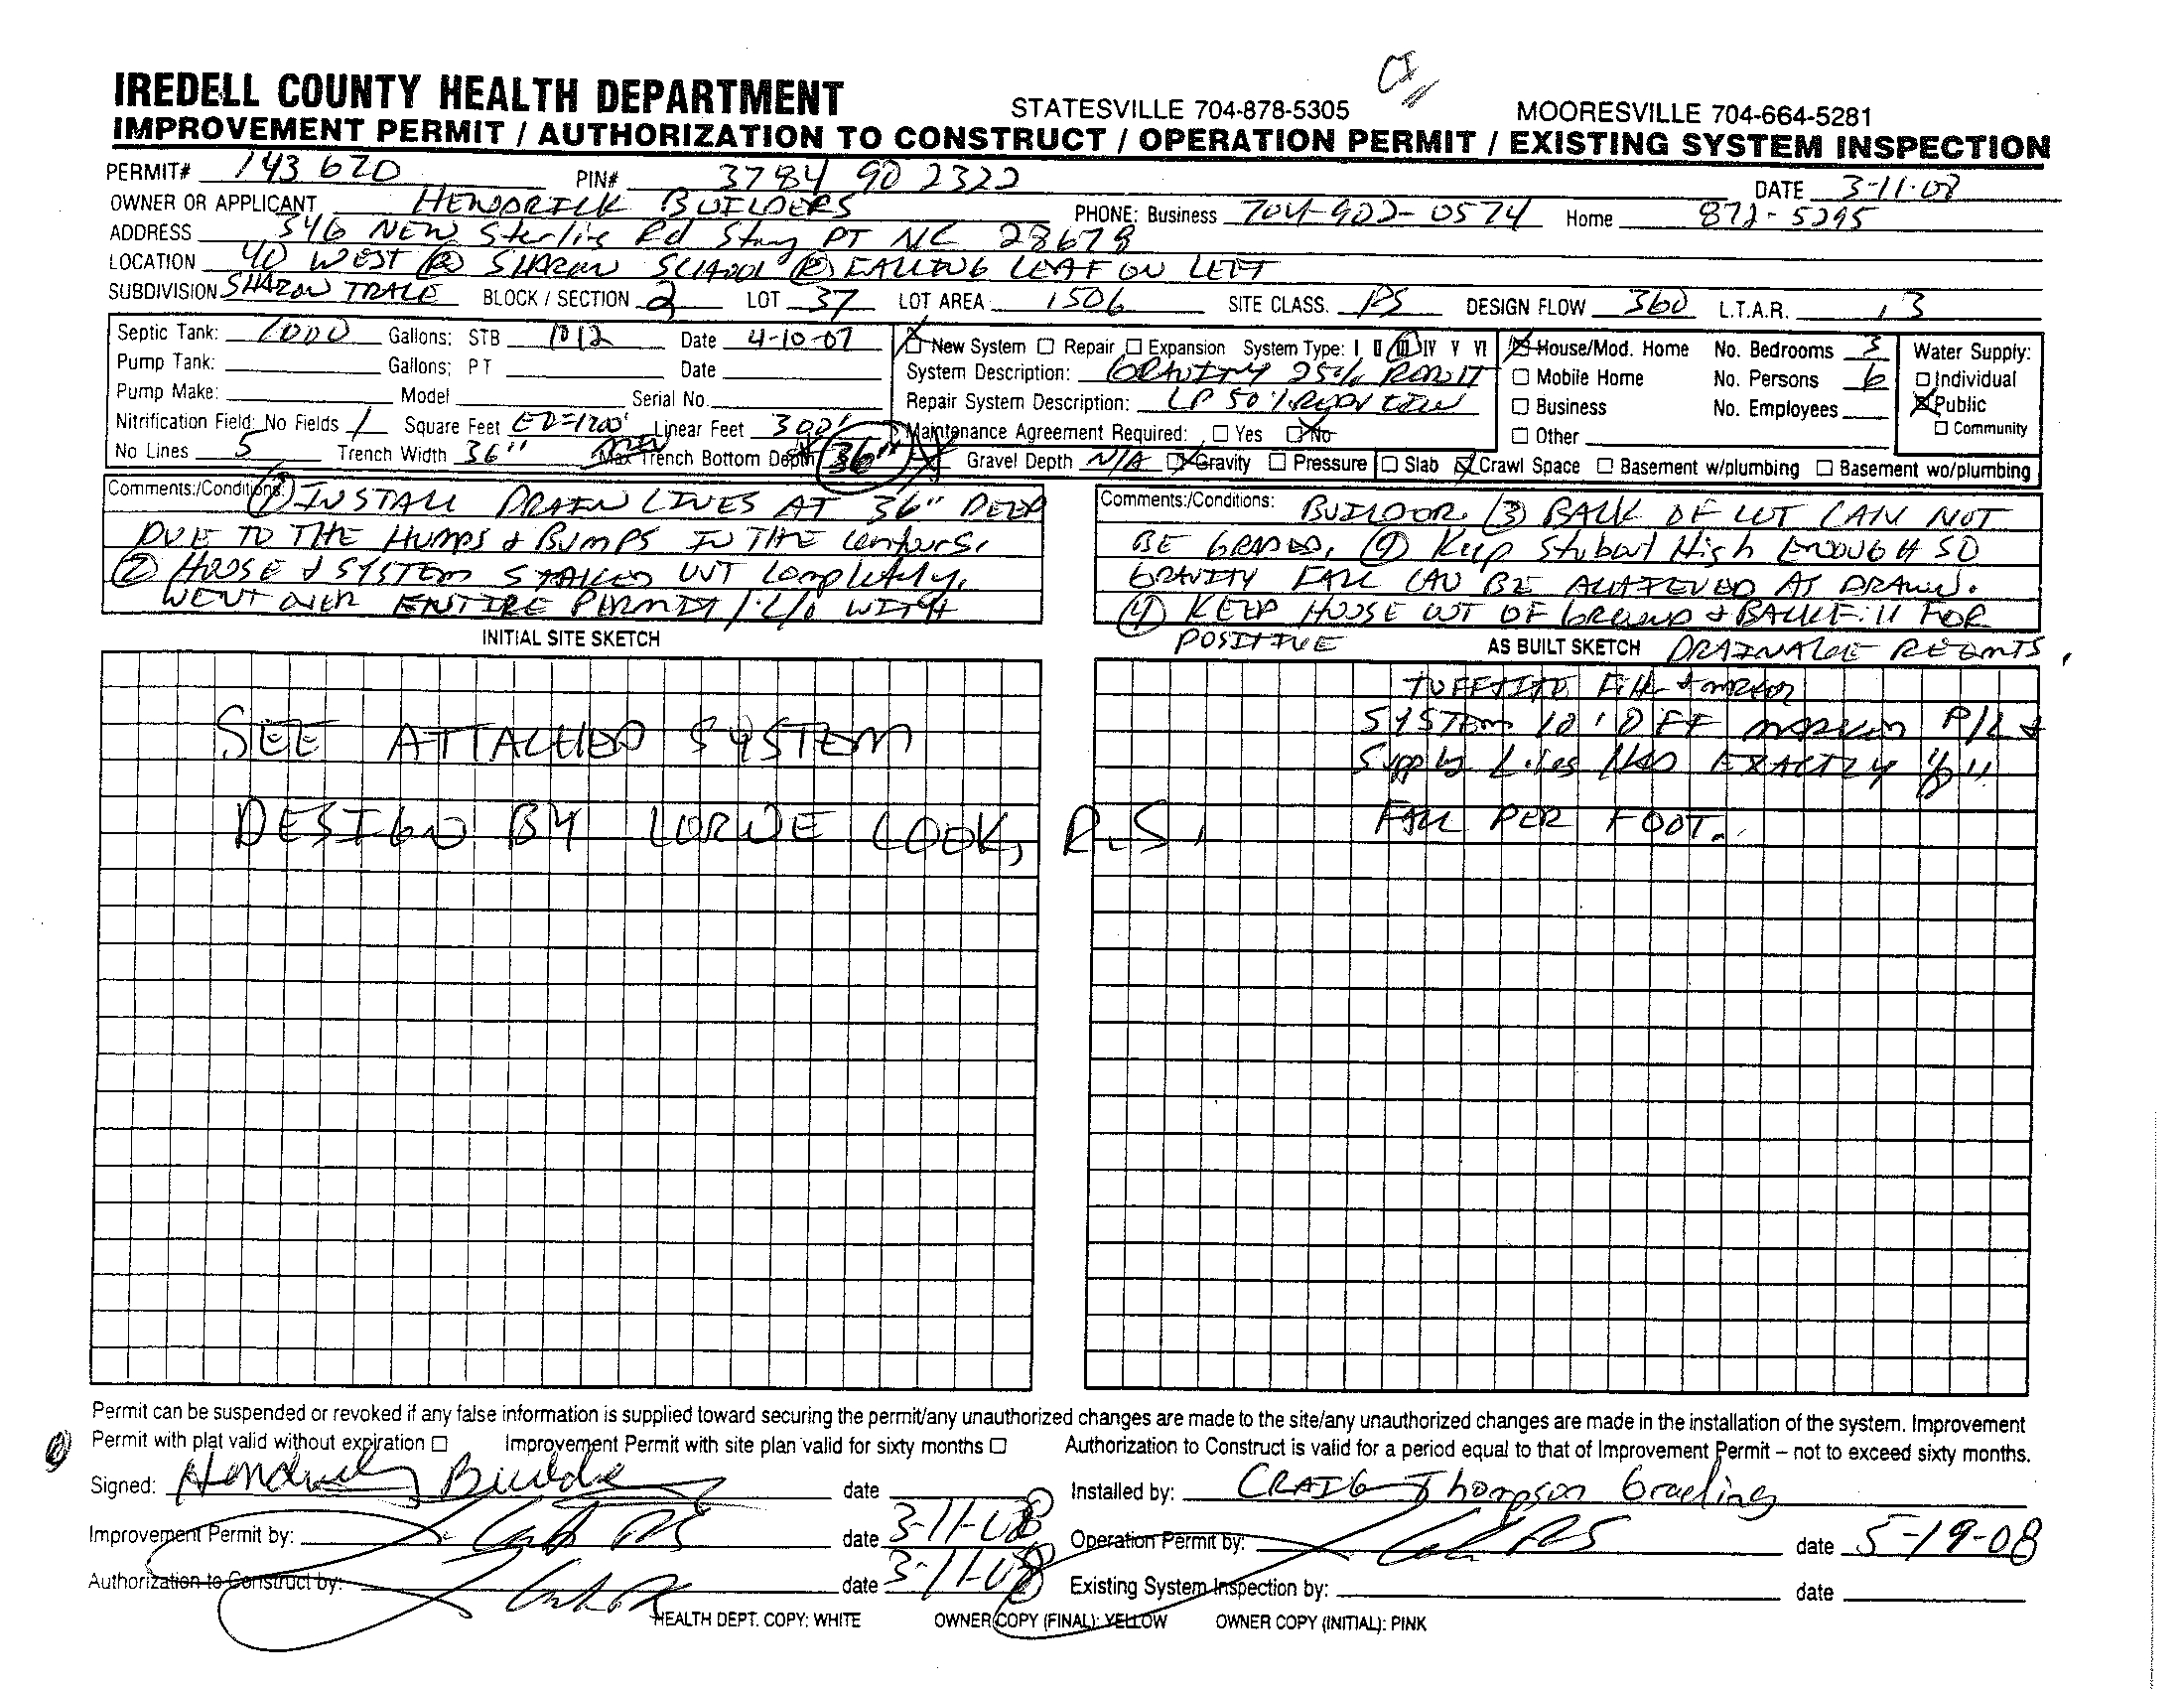 IREDELL COUNTY HEALTH DEPARTMENT STATESVILLE 704-878-5305 CI MOORESVILLE 704-664-5281
IMPROVEMENT PERMIT / AUTHORIZATION TO CONSTRUCT / OPERATION PERMIT / EXISTING SYSTEM INSPECTION
PERMIT# 143 620 PIN# 3784 90 2322 DATE 3-11-08
OWNER OR APPLICANT HENDRICK BUILDERS PHONE: Business 704-902-0574 Home 872-5295
ADDRESS 346 NEW Sterling Rd Stony PT NC 28678
LOCATION 40 WEST (R) SHARON SCHOOL (R) FALLING LEAF ON LEFT
SUBDIVISION SHARON TRACE BLOCK / SECTION 2 LOT 37 LOT AREA 1506 SITE CLASS. PS DESIGN FLOW 360 L.T.A.R. .3
Septic Tank: 1000 Gallons: STB 1012 Date 4-10-07 New System Repair Expansion System Type: I II III IV V VI House/Mod. Home No. Bedrooms 3 Water Supply:
Pump Tank: Gallons: PT Date System Description: GRAVITY 25% Mobile Home No. Persons 6 Individual
Pump Make: Model Serial No. Repair System Description: LP 50% Business No. Employees Public
Nitrification Field: No Fields 1 Square Feet ED=1200' Linear Feet 300' Maintenance Agreement Required: Yes No Other Community
No Lines 5 Trench Width 36" Max Trench Bottom Depth 36" Gravel Depth N/A Gravity Pressure Slab Crawl Space Basement w/plumbing Basement wo/plumbing
Comments:/Conditions: (1) INSTALL DRAIN LINES AT 36" DEEP
DUE TO THE HUMPS & BUMPS IN THE contours.
(2) HOUSE & SYSTEM STAKED OUT completely.
WENT OVER ENTIRE PERMIT / C/O WITH
Comments:/Conditions: BUILDER. (3) BACK OF LOT CAN NOT
BE GRADED. (4) Keep Stubout High ENOUGH SO
GRAVITY FALL CAN BE ACHIEVED AS DRAWN.
(4) KEEP HOUSE OUT OF GROUND & BACKFill FOR
POSITIVE DRAINAGE REQMTS.
INITIAL SITE SKETCH
SEE ATTACHED SYSTEM
DESIGN BY LORNE COOK, R.S.
AS BUILT SKETCH
TUFFTITE Filter &
SYSTEM 10' OFF P/L &
Supply Lines HAS EXACTLY 1/8"
FALL PER FOOT.
Permit can be suspended or revoked if any false information is supplied toward securing the permit/any unauthorized changes are made to the site/any unauthorized changes are made in the installation of the system. Improvement
Permit with plat valid without expiration Improvement Permit with site plan valid for sixty months Authorization to Construct is valid for a period equal to that of Improvement Permit – not to exceed sixty months.
Signed: Hendrick Builders date Installed by: CRAIG Thompson Grading
Improvement Permit by: RS date 3-11-08 Operation Permit by: RS date 5-19-08
Authorization to Construct by: date 3-11-08 Existing System Inspection by: date
HEALTH DEPT. COPY: WHITE OWNER COPY (FINAL): YELLOW OWNER COPY (INITIAL): PINK